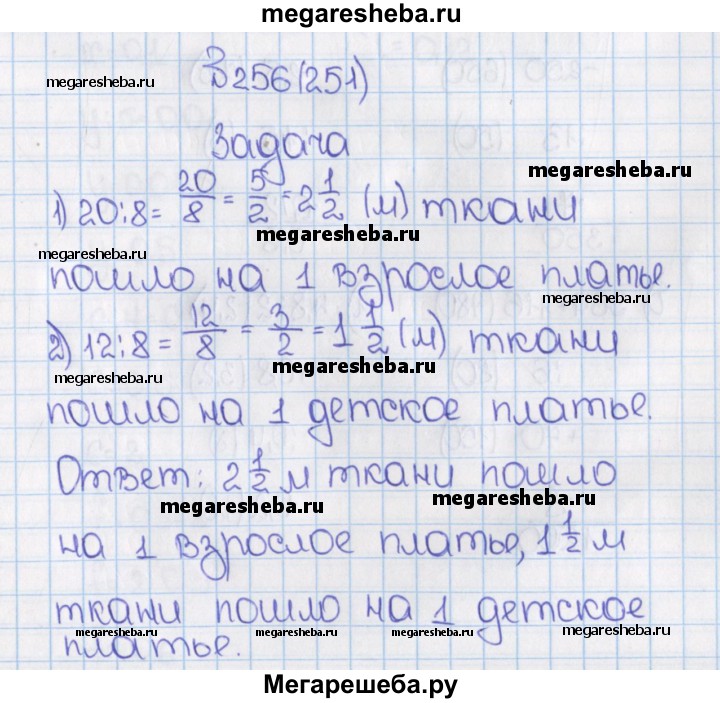 megaresheba.ru
В256(251)
megaresheba.ru
Задача
megaresheba.ru
1) 20:8 = 20/8 = 5/2 = 2 1/2 (м) ткани
megaresheba.ru
megaresheba.ru
пошло на 1 взрослое платье.
megaresheba.ru
2) 12:8 = 12/8 = 3/2 = 1 1/2 (м) ткани
megaresheba.ru
megaresheba.ru
пошло на 1 детское платье.
Ответ: 2 1/2 м ткани пошло
megaresheba.ru
megaresheba.ru
на 1 взрослое платье, 1 1/2 м
ткани пошло на 1 детское
megaresheba.ru megaresheba.ru megaresheba.ru megaresheba.ru
платье.
Мегарешеба.ру